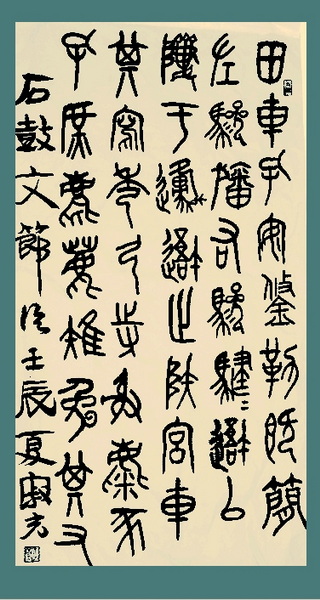 田車孔安鋚勒既簡
左驂旛右驂騝〻避以
隮于邍避止陝宮車
其寫秀弓寺射麋豕
孔庶麀鹿雉兔其又
石鼓文節臨壬辰夏寂